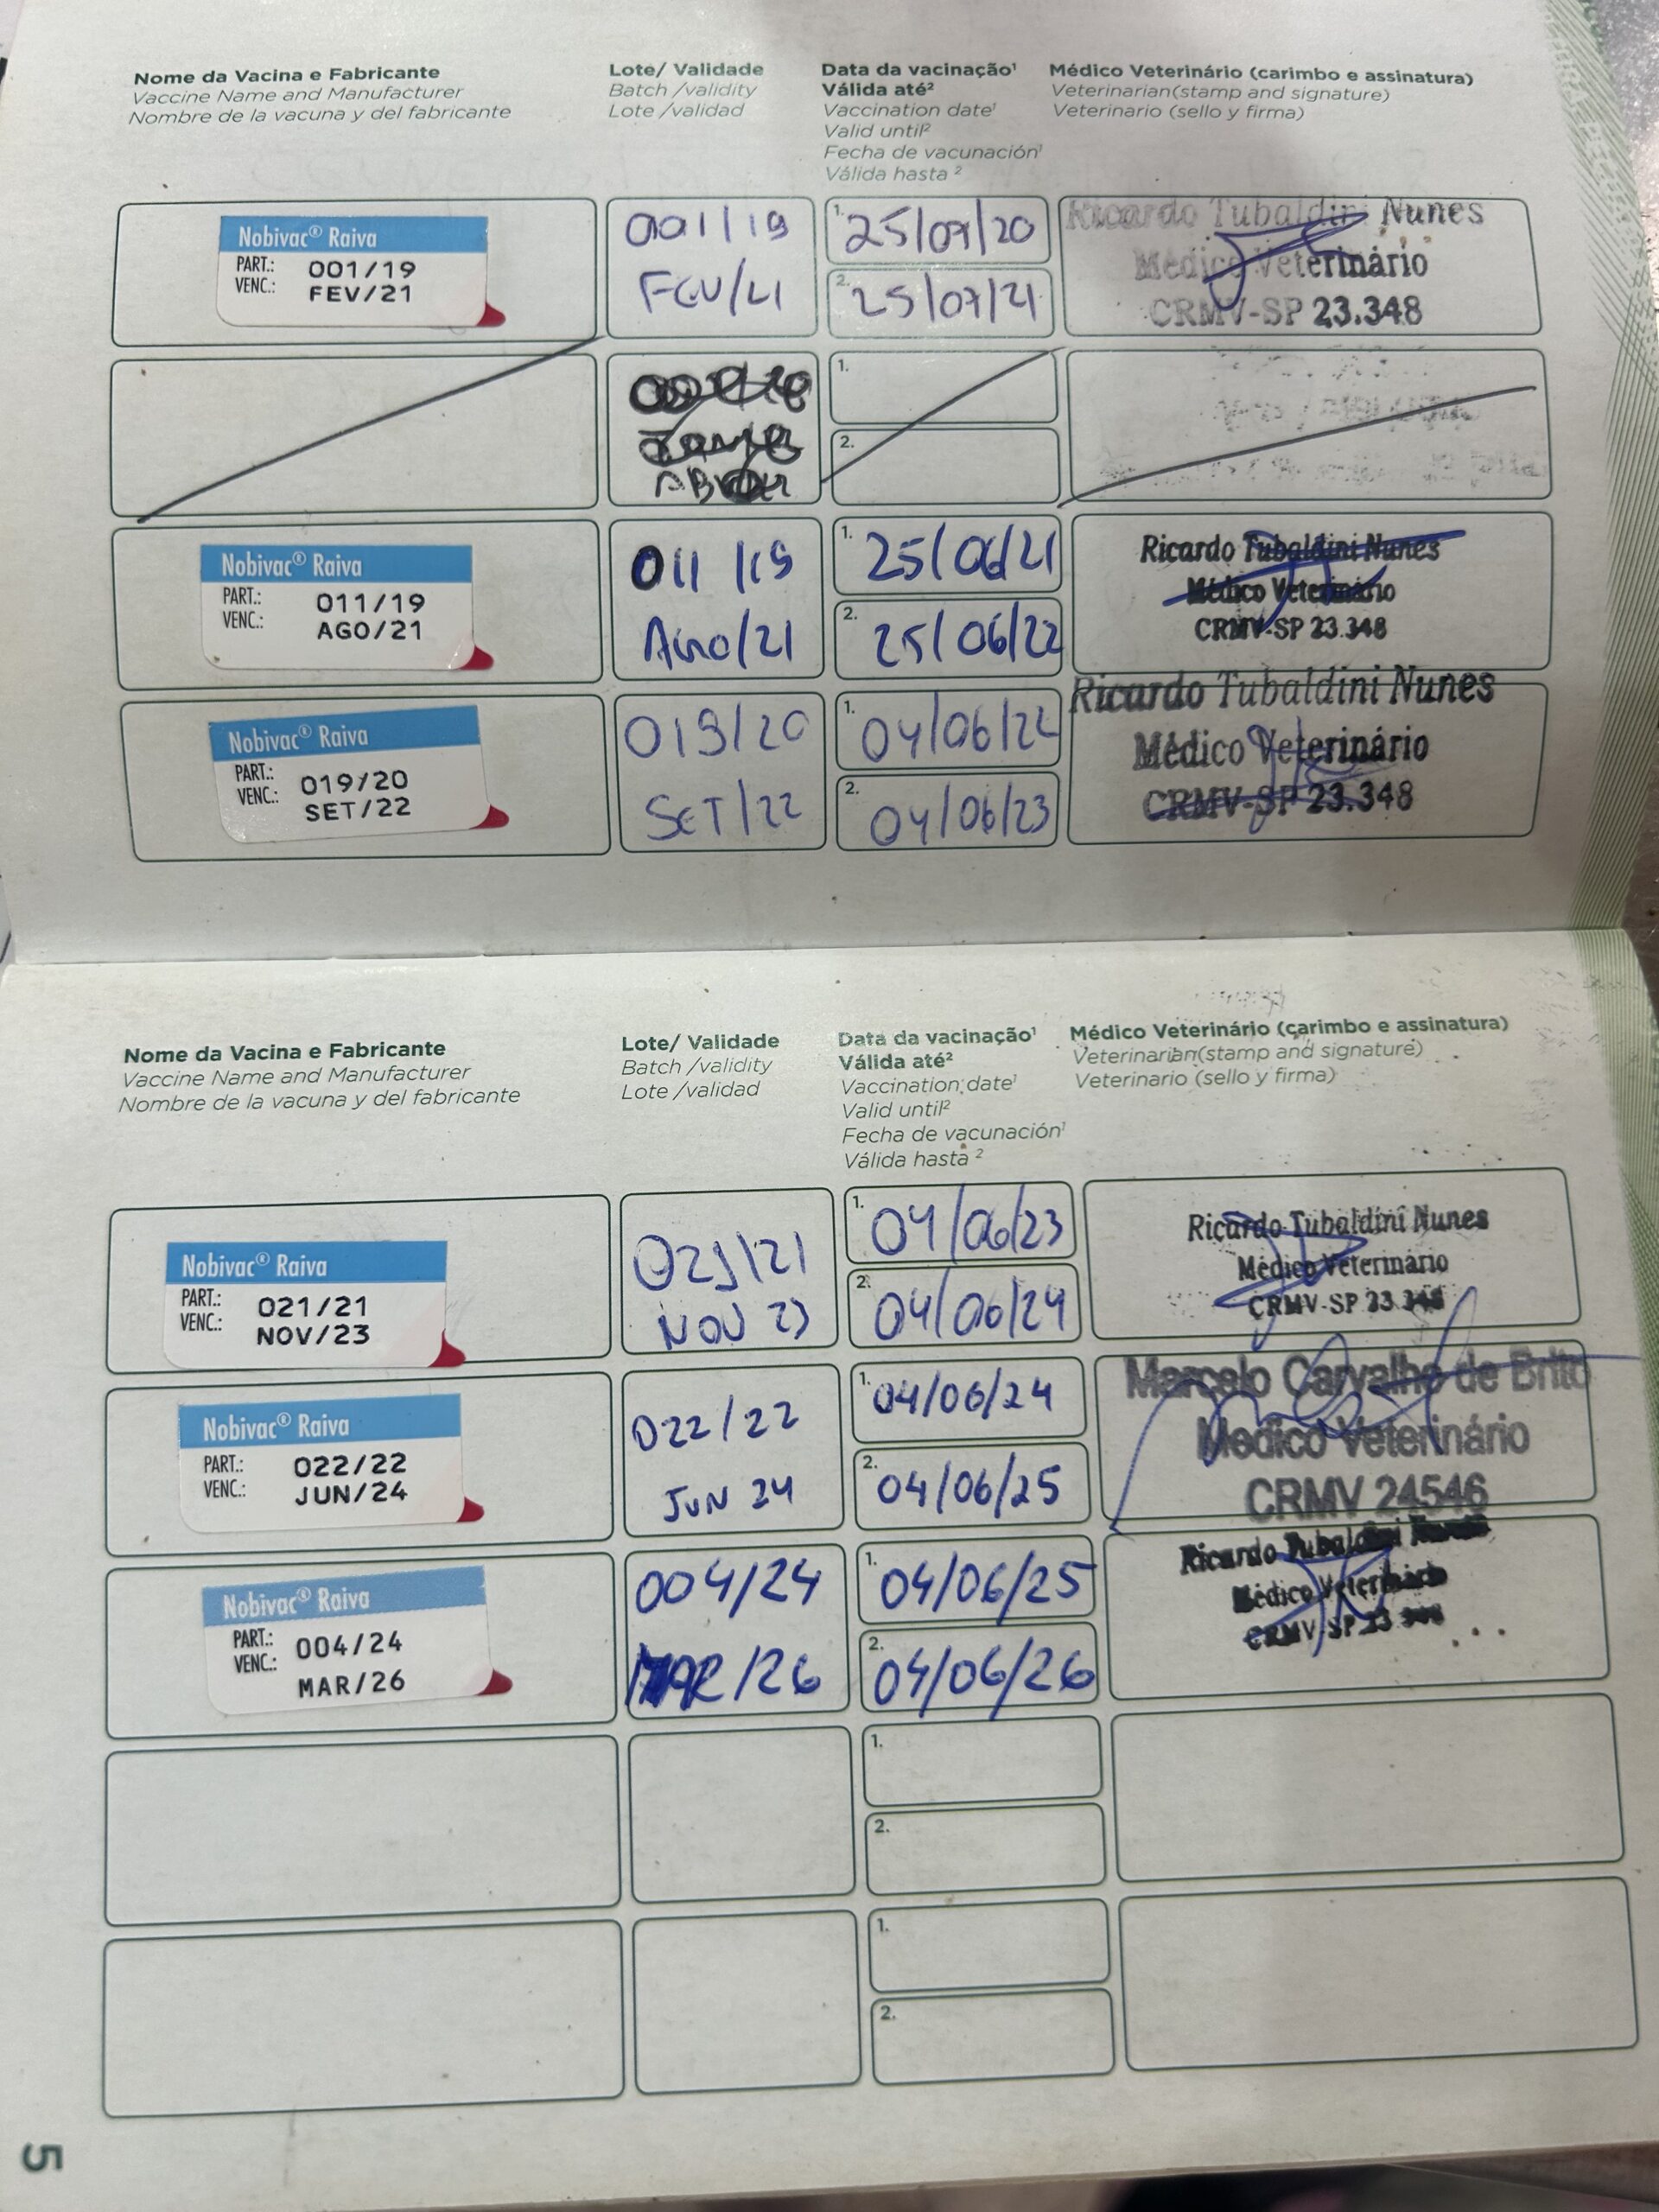 Nome da Vacina e Fabricante
Vaccine Name and Manufacturer
Nombre de la vacuna y del fabricante
Lote/ Validade
Batch /validity
Lote /validad
Data da vacinação¹
Válida até²
Vaccination date¹
Valid until²
Fecha de vacunación¹
Válida hasta ²
Médico Veterinário (carimbo e assinatura)
Veterinarian(stamp and signature)
Veterinario (sello y firma)
Nobivac® Raiva
PART.: 001/19
VENC.: FEV/21
001/19
FEV/21
1. 25/07/20
2. 25/07/21
Ricardo Tubaldini Nunes
Médico Veterinário
CRMV-SP 23.348
1.
2.
Nobivac® Raiva
PART.: 011/19
VENC.: AGO/21
011/19
AGO/21
1. 25/06/21
2. 25/06/22
Ricardo Tubaldini Nunes
Médico Veterinário
CRMV-SP 23.348
Nobivac® Raiva
PART.: 019/20
VENC.: SET/22
019/20
SET/22
1. 04/06/22
2. 04/06/23
Ricardo Tubaldini Nunes
Médico Veterinário
CRMV-SP 23.348
Nome da Vacina e Fabricante
Vaccine Name and Manufacturer
Nombre de la vacuna y del fabricante
Lote/ Validade
Batch /validity
Lote /validad
Data da vacinação¹
Válida até²
Vaccination date¹
Valid until²
Fecha de vacunación¹
Válida hasta ²
Médico Veterinário (carimbo e assinatura)
Veterinarian(stamp and signature)
Veterinario (sello y firma)
Nobivac® Raiva
PART.: 021/21
VENC.: NOV/23
021/21
NOV 23
1. 04/06/23
2. 04/06/24
Ricardo Tubaldini Nunes
Médico Veterinário
CRMV-SP 23.348
Nobivac® Raiva
PART.: 022/22
VENC.: JUN/24
022/22
JUN 24
1. 04/06/24
2. 04/06/25
Marcelo Carvalho de Brito
Medico Veterinário
CRMV 24546
Nobivac® Raiva
PART.: 004/24
VENC.: MAR/26
004/24
MAR/26
1. 04/06/25
2. 04/06/26
Ricardo Tubaldini Nunes
Médico Veterinário
CRMV-SP 23.348
1.
2.
1.
2.
5